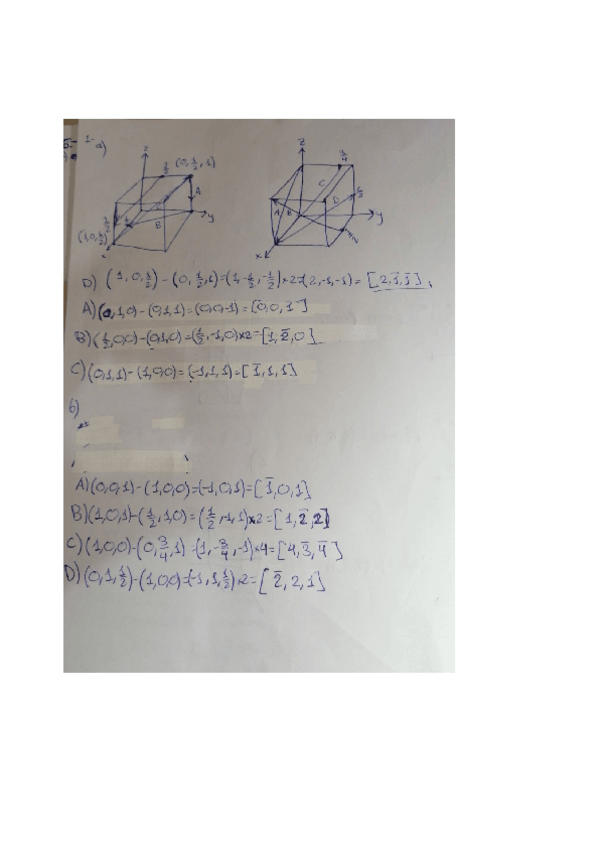 1- a)
z
(0,1/2,1)
A
y
B
(1,0,1/2)
z
3/4
C
D
A
B
y
x
D) (1,0,1/2)-(0,1/2,1)=(1,-1/2,-1/2)×2=(2,-1,-1)=[2,1̄,1̄]
A)(0,1,0)-(0,1,1)=(0,0-1)=[0,0,1̄]
B)(1/2,0,0)-(0,1,0)=(1/2,-1,0)×2=[1,2̄,0]
C)(0,1,1)-(1,0,0)=(-1,1,1)=[1̄,1,1]
b)
A)(0,0,1)-(1,0,0)=(-1,0,1)=[1̄,0,1]
B)(1,0,1)-(1/2,1,0)=(1/2,-1,1)×2=[1,2̄,2]
C)(1,0,0)-(0,3/4,1)=(1,-3/4,-1)×4=[4,3̄,4̄]
D)(0,1,1/2)-(1,0,0)=(-1,1,1/2)×2=[2̄,2,1]